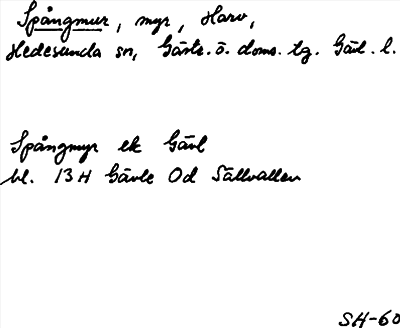 Spångmur, myr, Harv,
Hedesunda sn, Gästr. ö. doms. tg. Gävl. l.
Spångmyr ek Gävl
bl. 13 H Gävle Od Sällvallen
SH-60